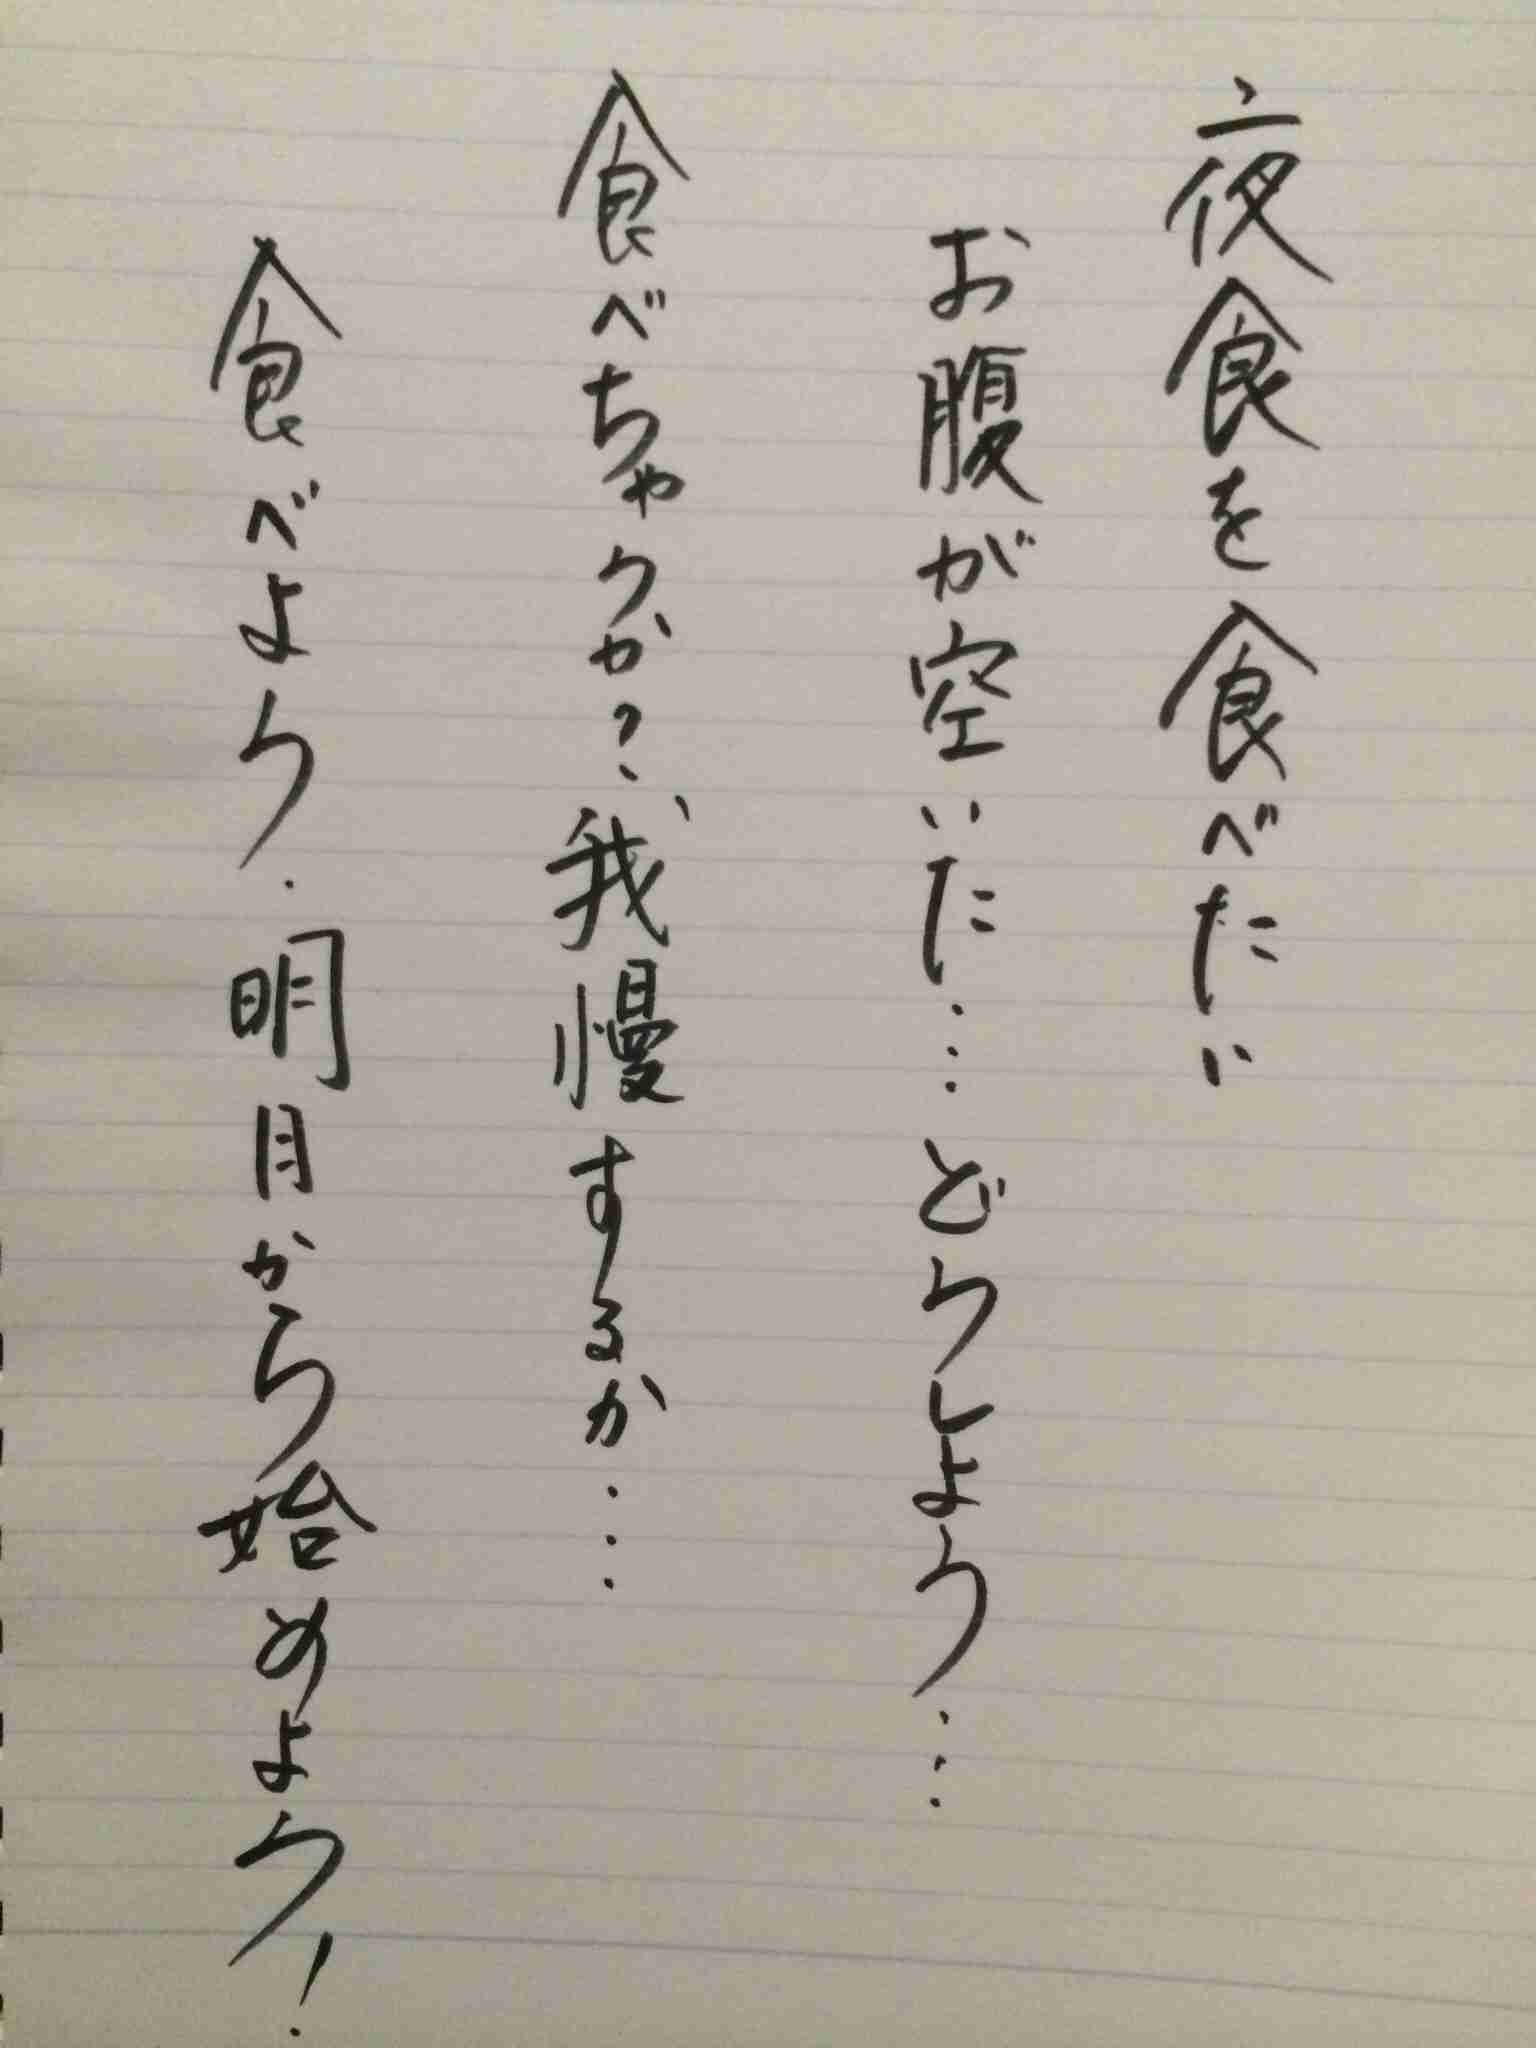 夜食を食べたい
お腹が空いた…どうしよう…
食べちゃうか?、我慢するか…
食べよう.明日から始めよう!